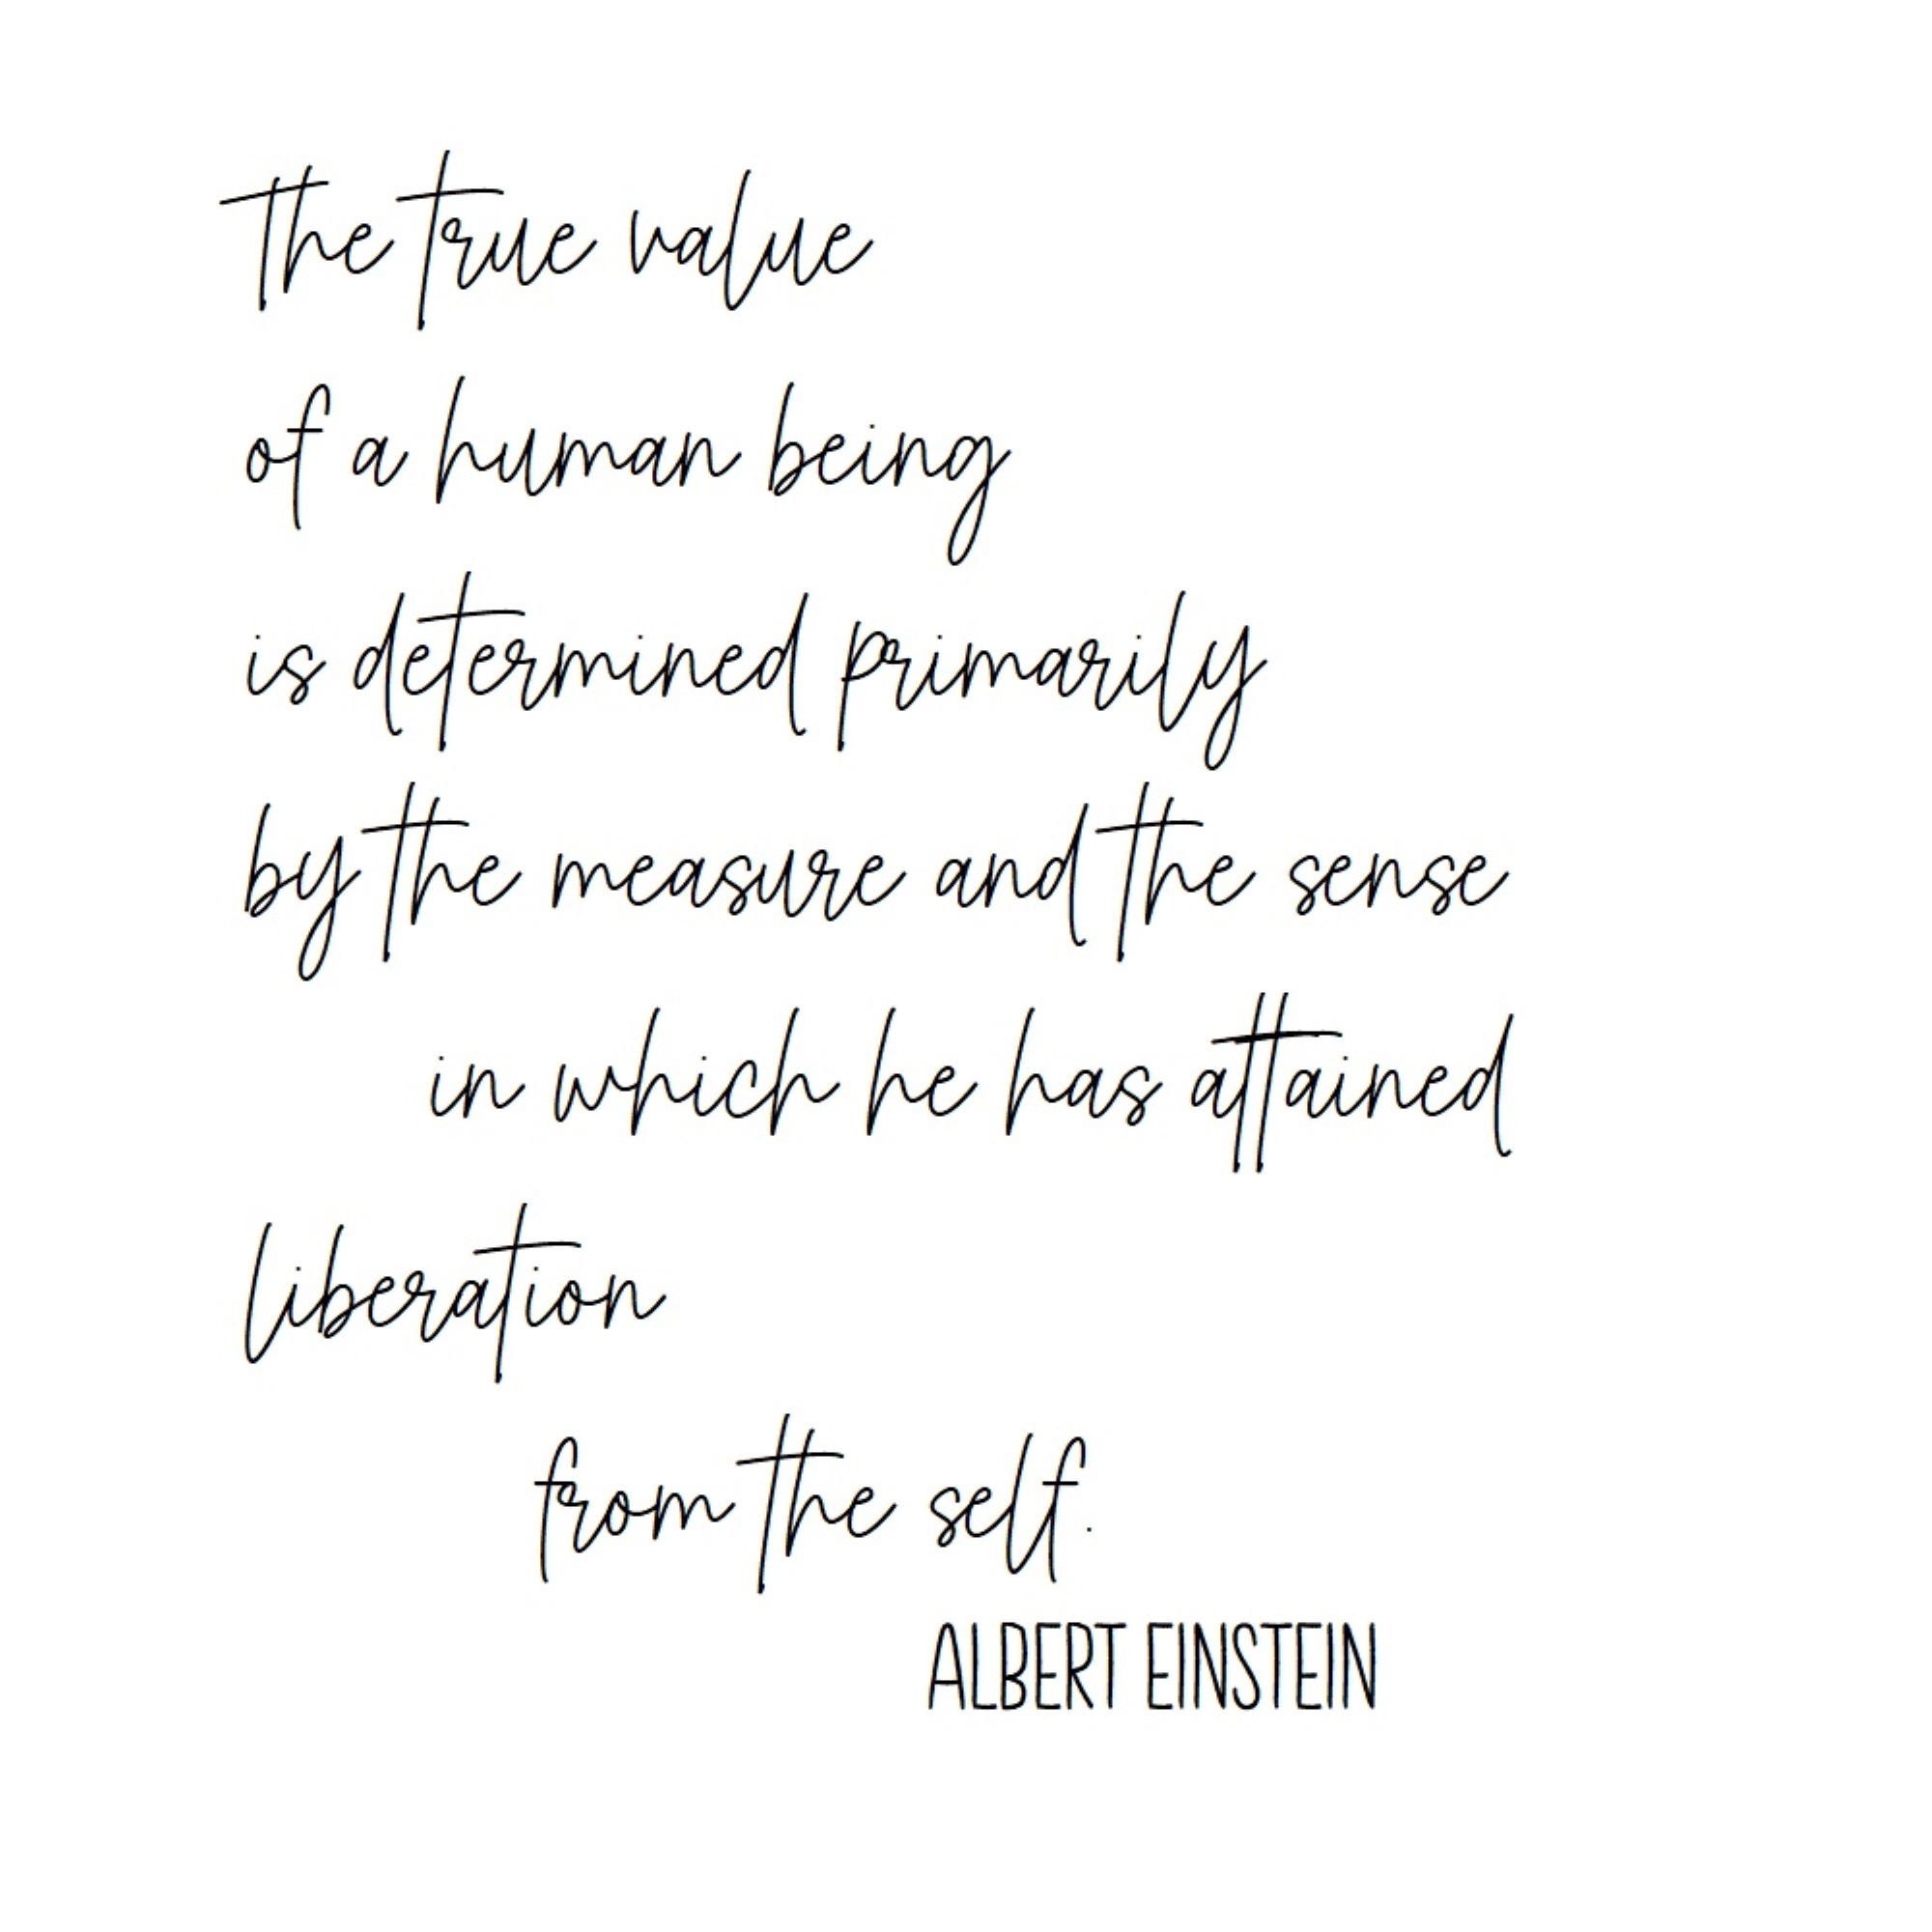 The true value
of a human being
is determined primarily
by the measure and the sense
in which he has attained
liberation
from the self.
ALBERT EINSTEIN